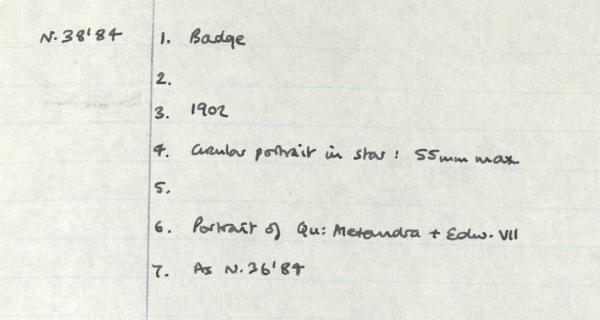 N.38'84 1. Badge
2.
3. 1902
4. Circular portrait in star : 55mm max
5.
6. Portrait of Qu: Alexandra + Edw. VII
7. As N.36'84